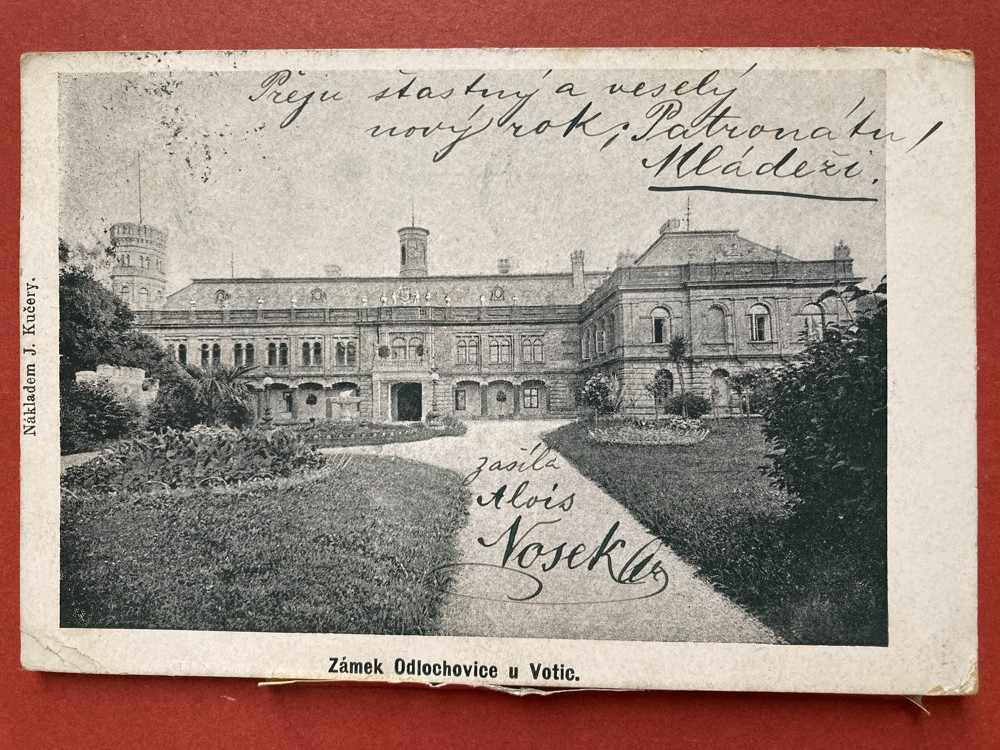 Přeju štastný a veselý
nový rok, Patronátu,
Mládeži.
Nákladem J. Kučery.
zasíla
Alois
Nosek
Zámek Odlochovice u Votic.